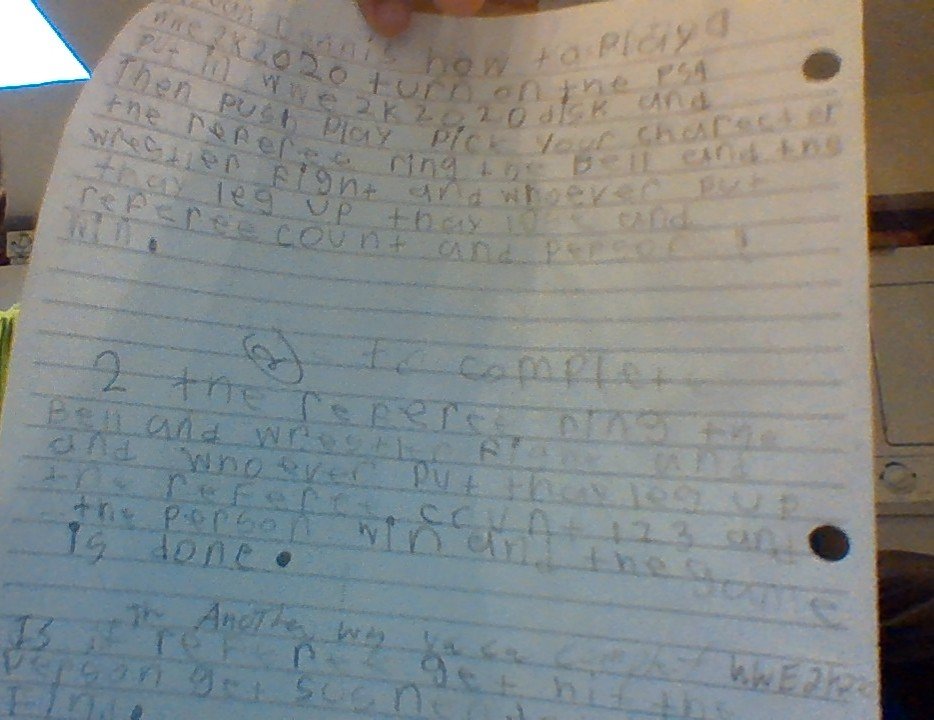 how to play a
wwe 2k2020 turn on the PS4
Put in wwe 2k2020 disk and
Then push play pick your charecter
the referee ring the Bell and the
wrestler fight and whoever put
thay leg up thay lose and
referee count and person 1
win.
(2) to complete
2 the referee ring the
Bell and wrestler fight and
and whoever put thay leg up
the referee count 123 and
the person win and the game
is done.
Is it Another
referee get hit the
person get